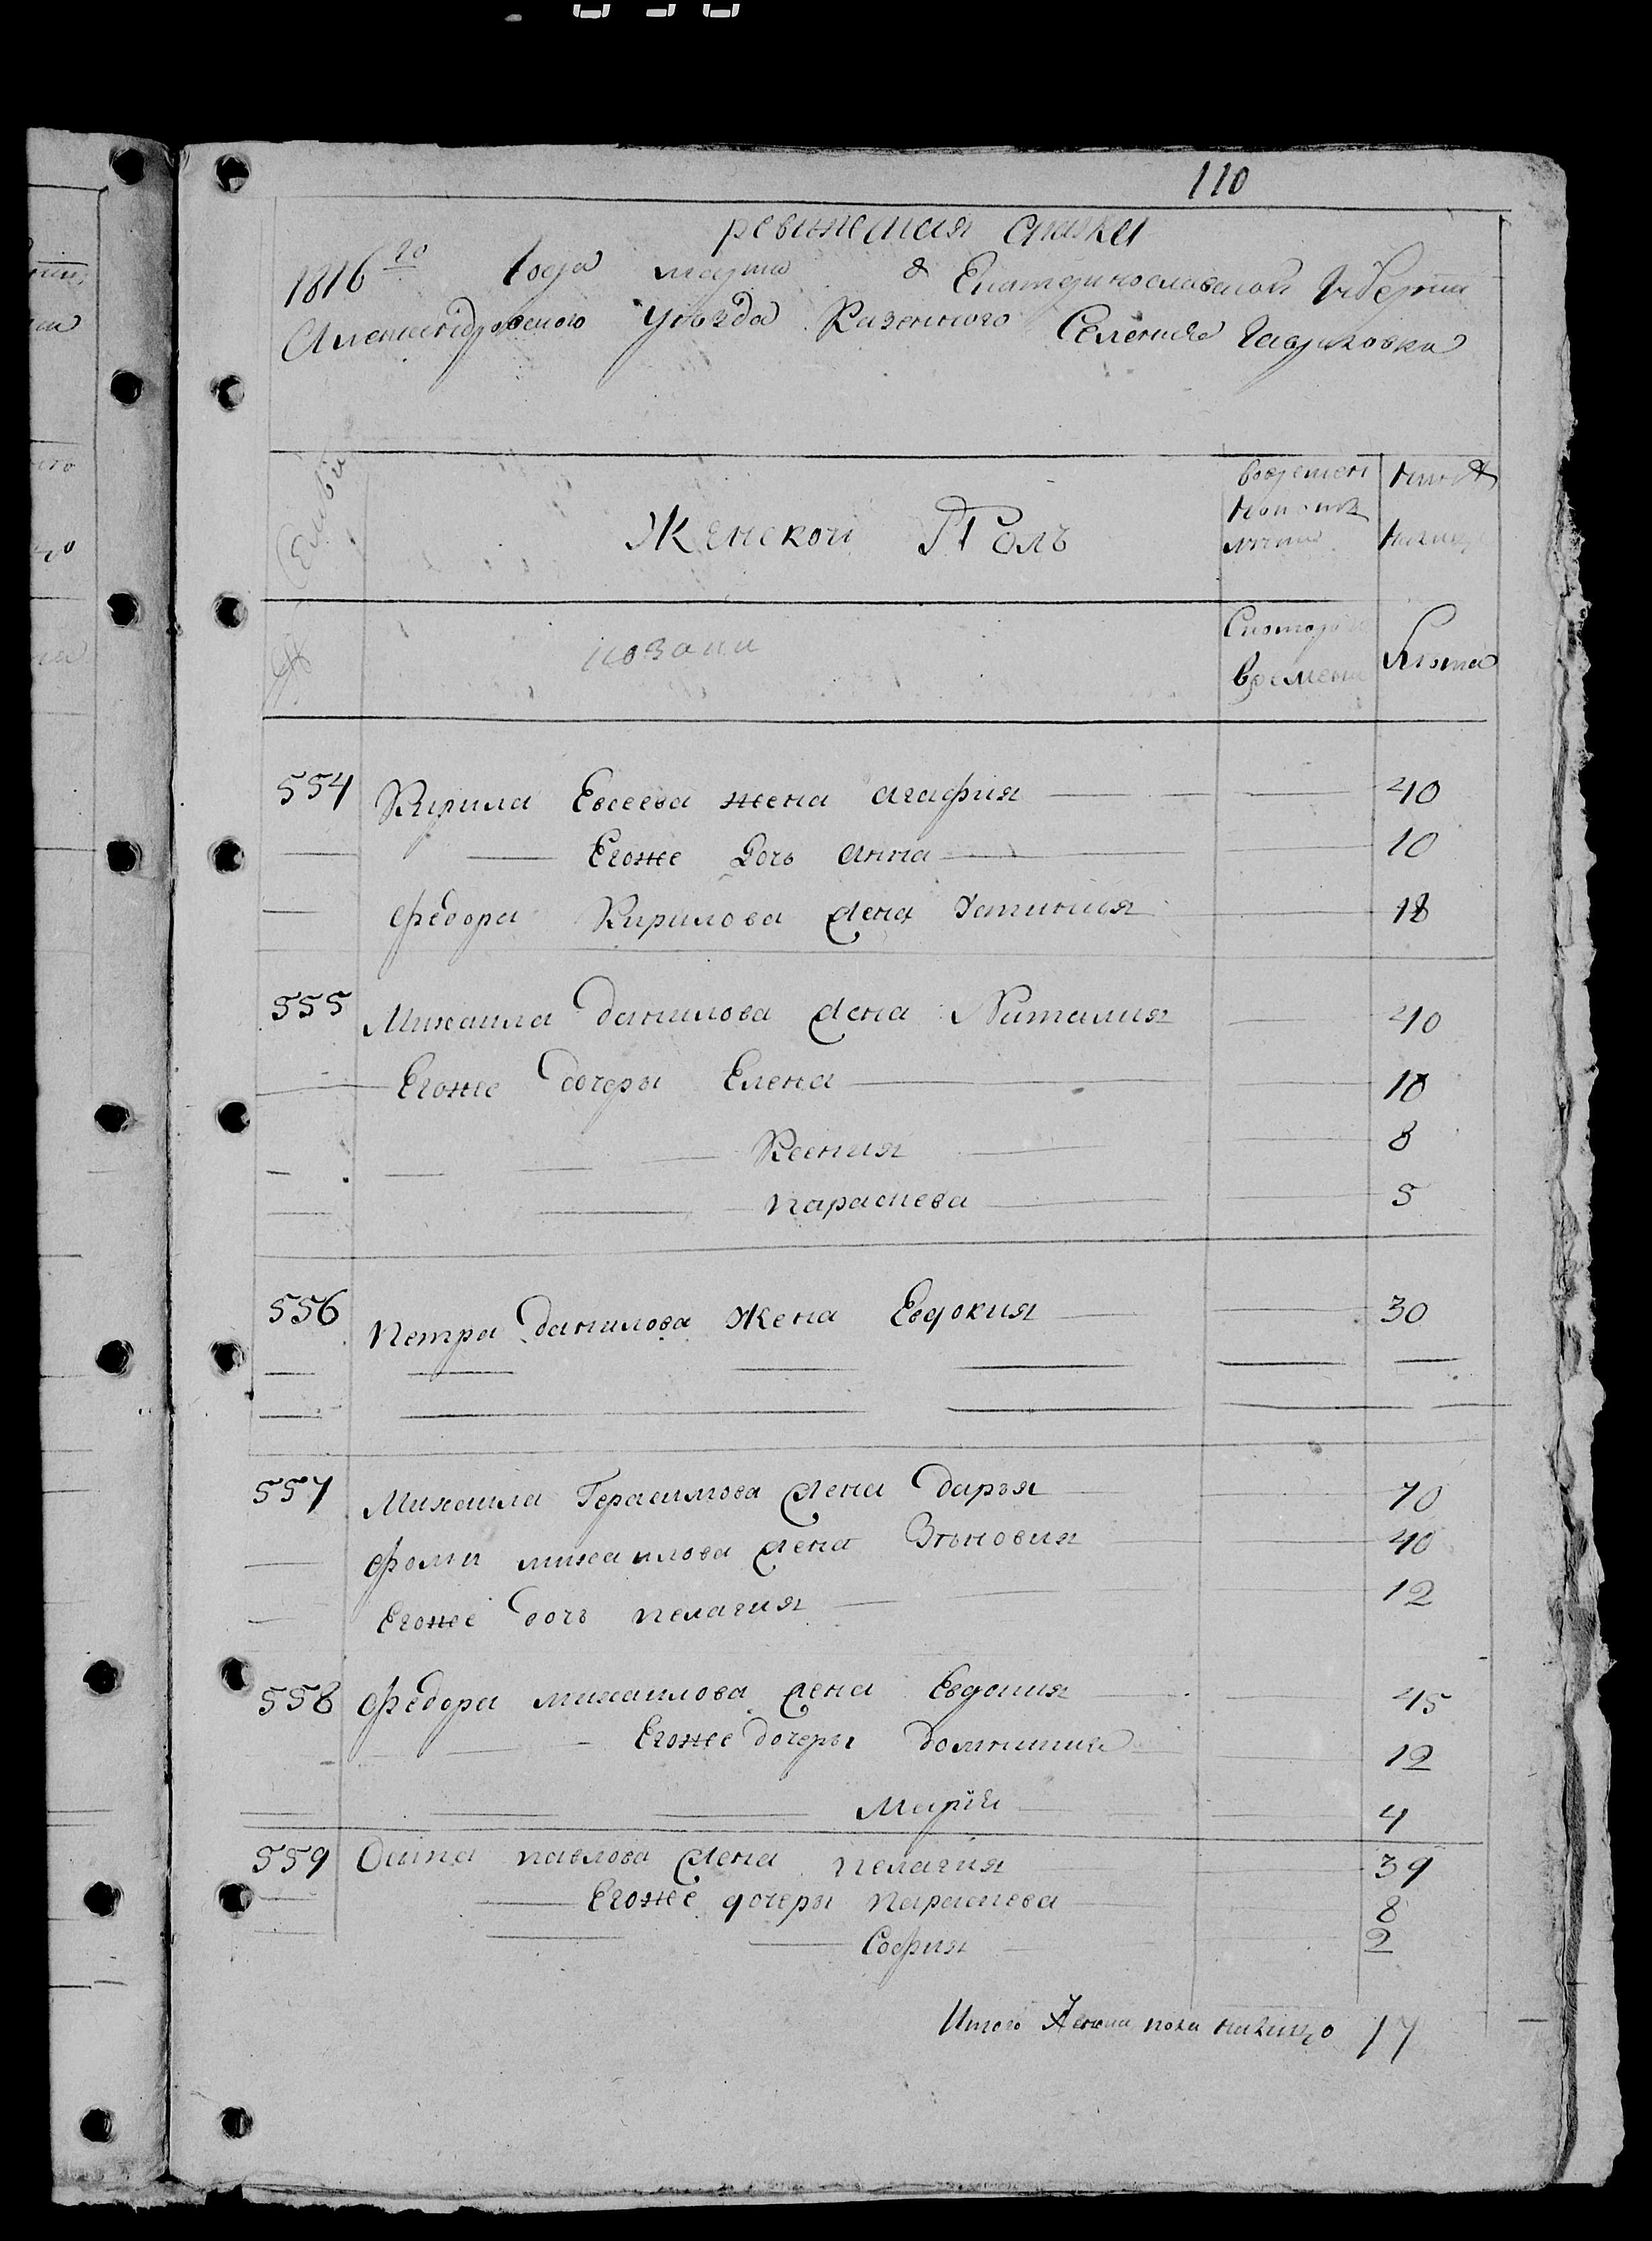 110
ревижская скаска
1816го Года марта 8 Екатеринославской Губернии
Александровского уѣзда Казенного Селения Гавриловки
Семьи
Женской Полъ
вовремен
нинѣ
ной отлу
чкѣ
налицо
казаки
Скотораго
времени
Лѣта
554 Кирила Евсеева жена агафия 40
Егоже Дочь анна 10
федора Кирилова жена Устиния 18
555 Михаила данилова жена Наталия 40
Егоже дочеры Елена 10
Ксения 8
параскева 5
556 петра данилова Жена Евдокия 30
557 Михаила Герасимова жена дарья 70
фомы михаилова жена Зѣновия 40
Егоже дочь пелагия 12
558 федора михаилова жена Евдокия 45
Егоже дочеры домникия 12
Мария 4
559 Осипа павлова жена пелагия 39
Егоже дочеры параскева 8
София 2
Итого Женска пола налицо 17